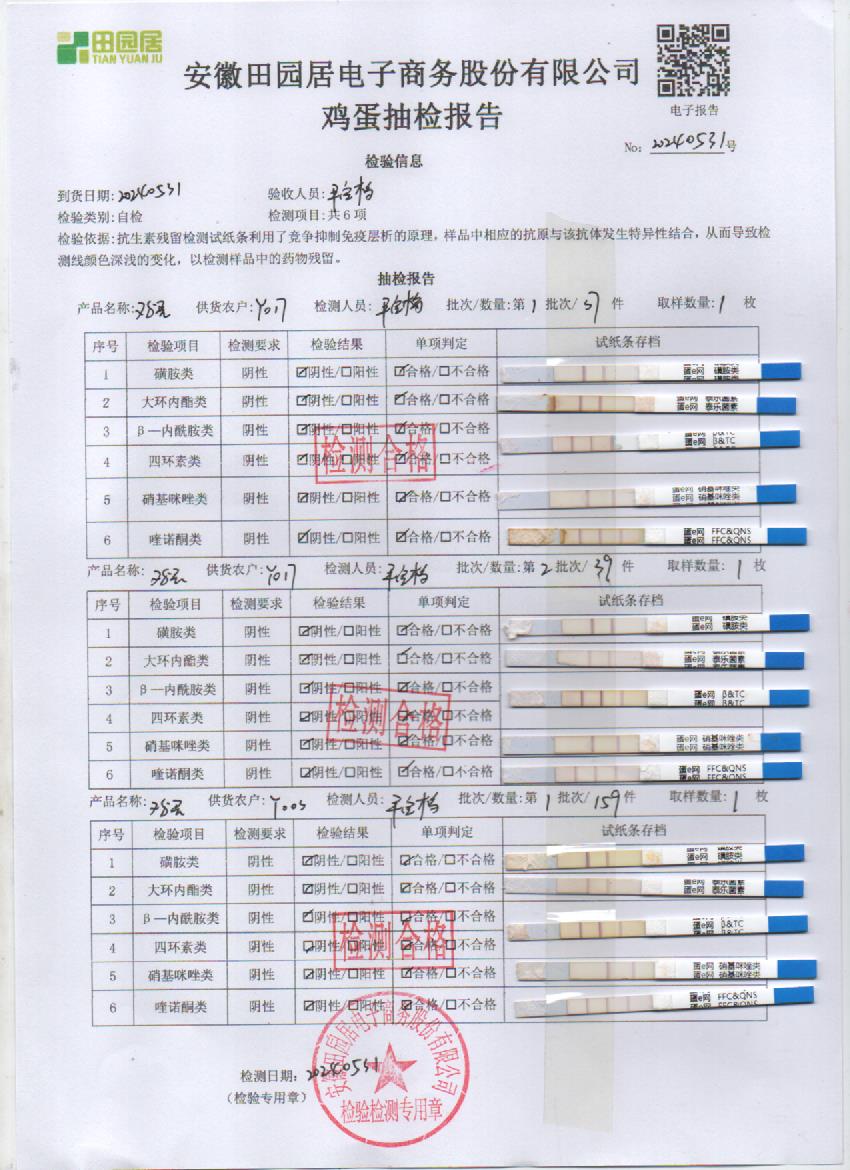 田园居
TIAN YUAN JU
安徽田园居电子商务股份有限公司
鸡蛋抽检报告
电子报告
No: 20240531号
检验信息
到货日期: 20240531 验收人员:
检验类别: 自检 检测项目: 共 6 项
检验依据: 抗生素残留检测试纸条利用了竞争抑制免疫层析的原理, 样品中相应的抗原与该抗体发生特异性结合, 从而导致检
测线颜色深浅的变化, 以检测样品中的药物残留。
抽检报告
产品名称: 供货农户: Y017 检测人员: 批次/数量: 第 1 批次/ 37 件 取样数量: 1 枚
序号 检验项目 检测要求 检验结果 单项判定 试纸条存档
1 磺胺类 阴性 ☑阴性/☐阳性 ☑合格/☐不合格 蛋e网 磺胺类
2 大环内酯类 阴性 ☑阴性/☐阳性 ☑合格/☐不合格 蛋e网 泰乐菌素
3 β—内酰胺类 阴性 ☑阴性/☐阳性 ☑合格/☐不合格 蛋e网 β&TC
4 四环素类 阴性 ☑阴性/☐阳性 ☑合格/☐不合格
检测合格
5 硝基咪唑类 阴性 ☑阴性/☐阳性 ☑合格/☐不合格 蛋e网 硝基咪唑类
6 喹诺酮类 阴性 ☑阴性/☐阳性 ☑合格/☐不合格 蛋e网 FFC&QNS
产品名称: 供货农户: Y017 检测人员: 批次/数量: 第 2 批次/ 39 件 取样数量: 1 枚
序号 检验项目 检测要求 检验结果 单项判定 试纸条存档
1 磺胺类 阴性 ☑阴性/☐阳性 ☑合格/☐不合格 蛋e网 磺胺类
2 大环内酯类 阴性 ☑阴性/☐阳性 ☑合格/☐不合格 蛋e网 泰乐菌素
3 β—内酰胺类 阴性 ☑阴性/☐阳性 ☑合格/☐不合格 蛋e网 β&TC
4 四环素类 阴性 ☑阴性/☐阳性 ☑合格/☐不合格
检测合格
5 硝基咪唑类 阴性 ☑阴性/☐阳性 ☑合格/☐不合格 蛋e网 硝基咪唑类
6 喹诺酮类 阴性 ☑阴性/☐阳性 ☑合格/☐不合格 蛋e网 FFC&QNS
产品名称: 供货农户: Y003 检测人员: 批次/数量: 第 1 批次/ 159 件 取样数量: 1 枚
序号 检验项目 检测要求 检验结果 单项判定 试纸条存档
1 磺胺类 阴性 ☑阴性/☐阳性 ☑合格/☐不合格 蛋e网 磺胺类
2 大环内酯类 阴性 ☑阴性/☐阳性 ☑合格/☐不合格 蛋e网 泰乐菌素
3 β—内酰胺类 阴性 ☑阴性/☐阳性 ☑合格/☐不合格 蛋e网 β&TC
4 四环素类 阴性 ☑阴性/☐阳性 ☑合格/☐不合格
检测合格
5 硝基咪唑类 阴性 ☑阴性/☐阳性 ☑合格/☐不合格 蛋e网 硝基咪唑类
6 喹诺酮类 阴性 ☑阴性/☐阳性 ☑合格/☐不合格 蛋e网 FFC&QNS
安徽田园居电子商务股份有限公司
检测日期: 20240531
(检验专用章)
检验检测专用章